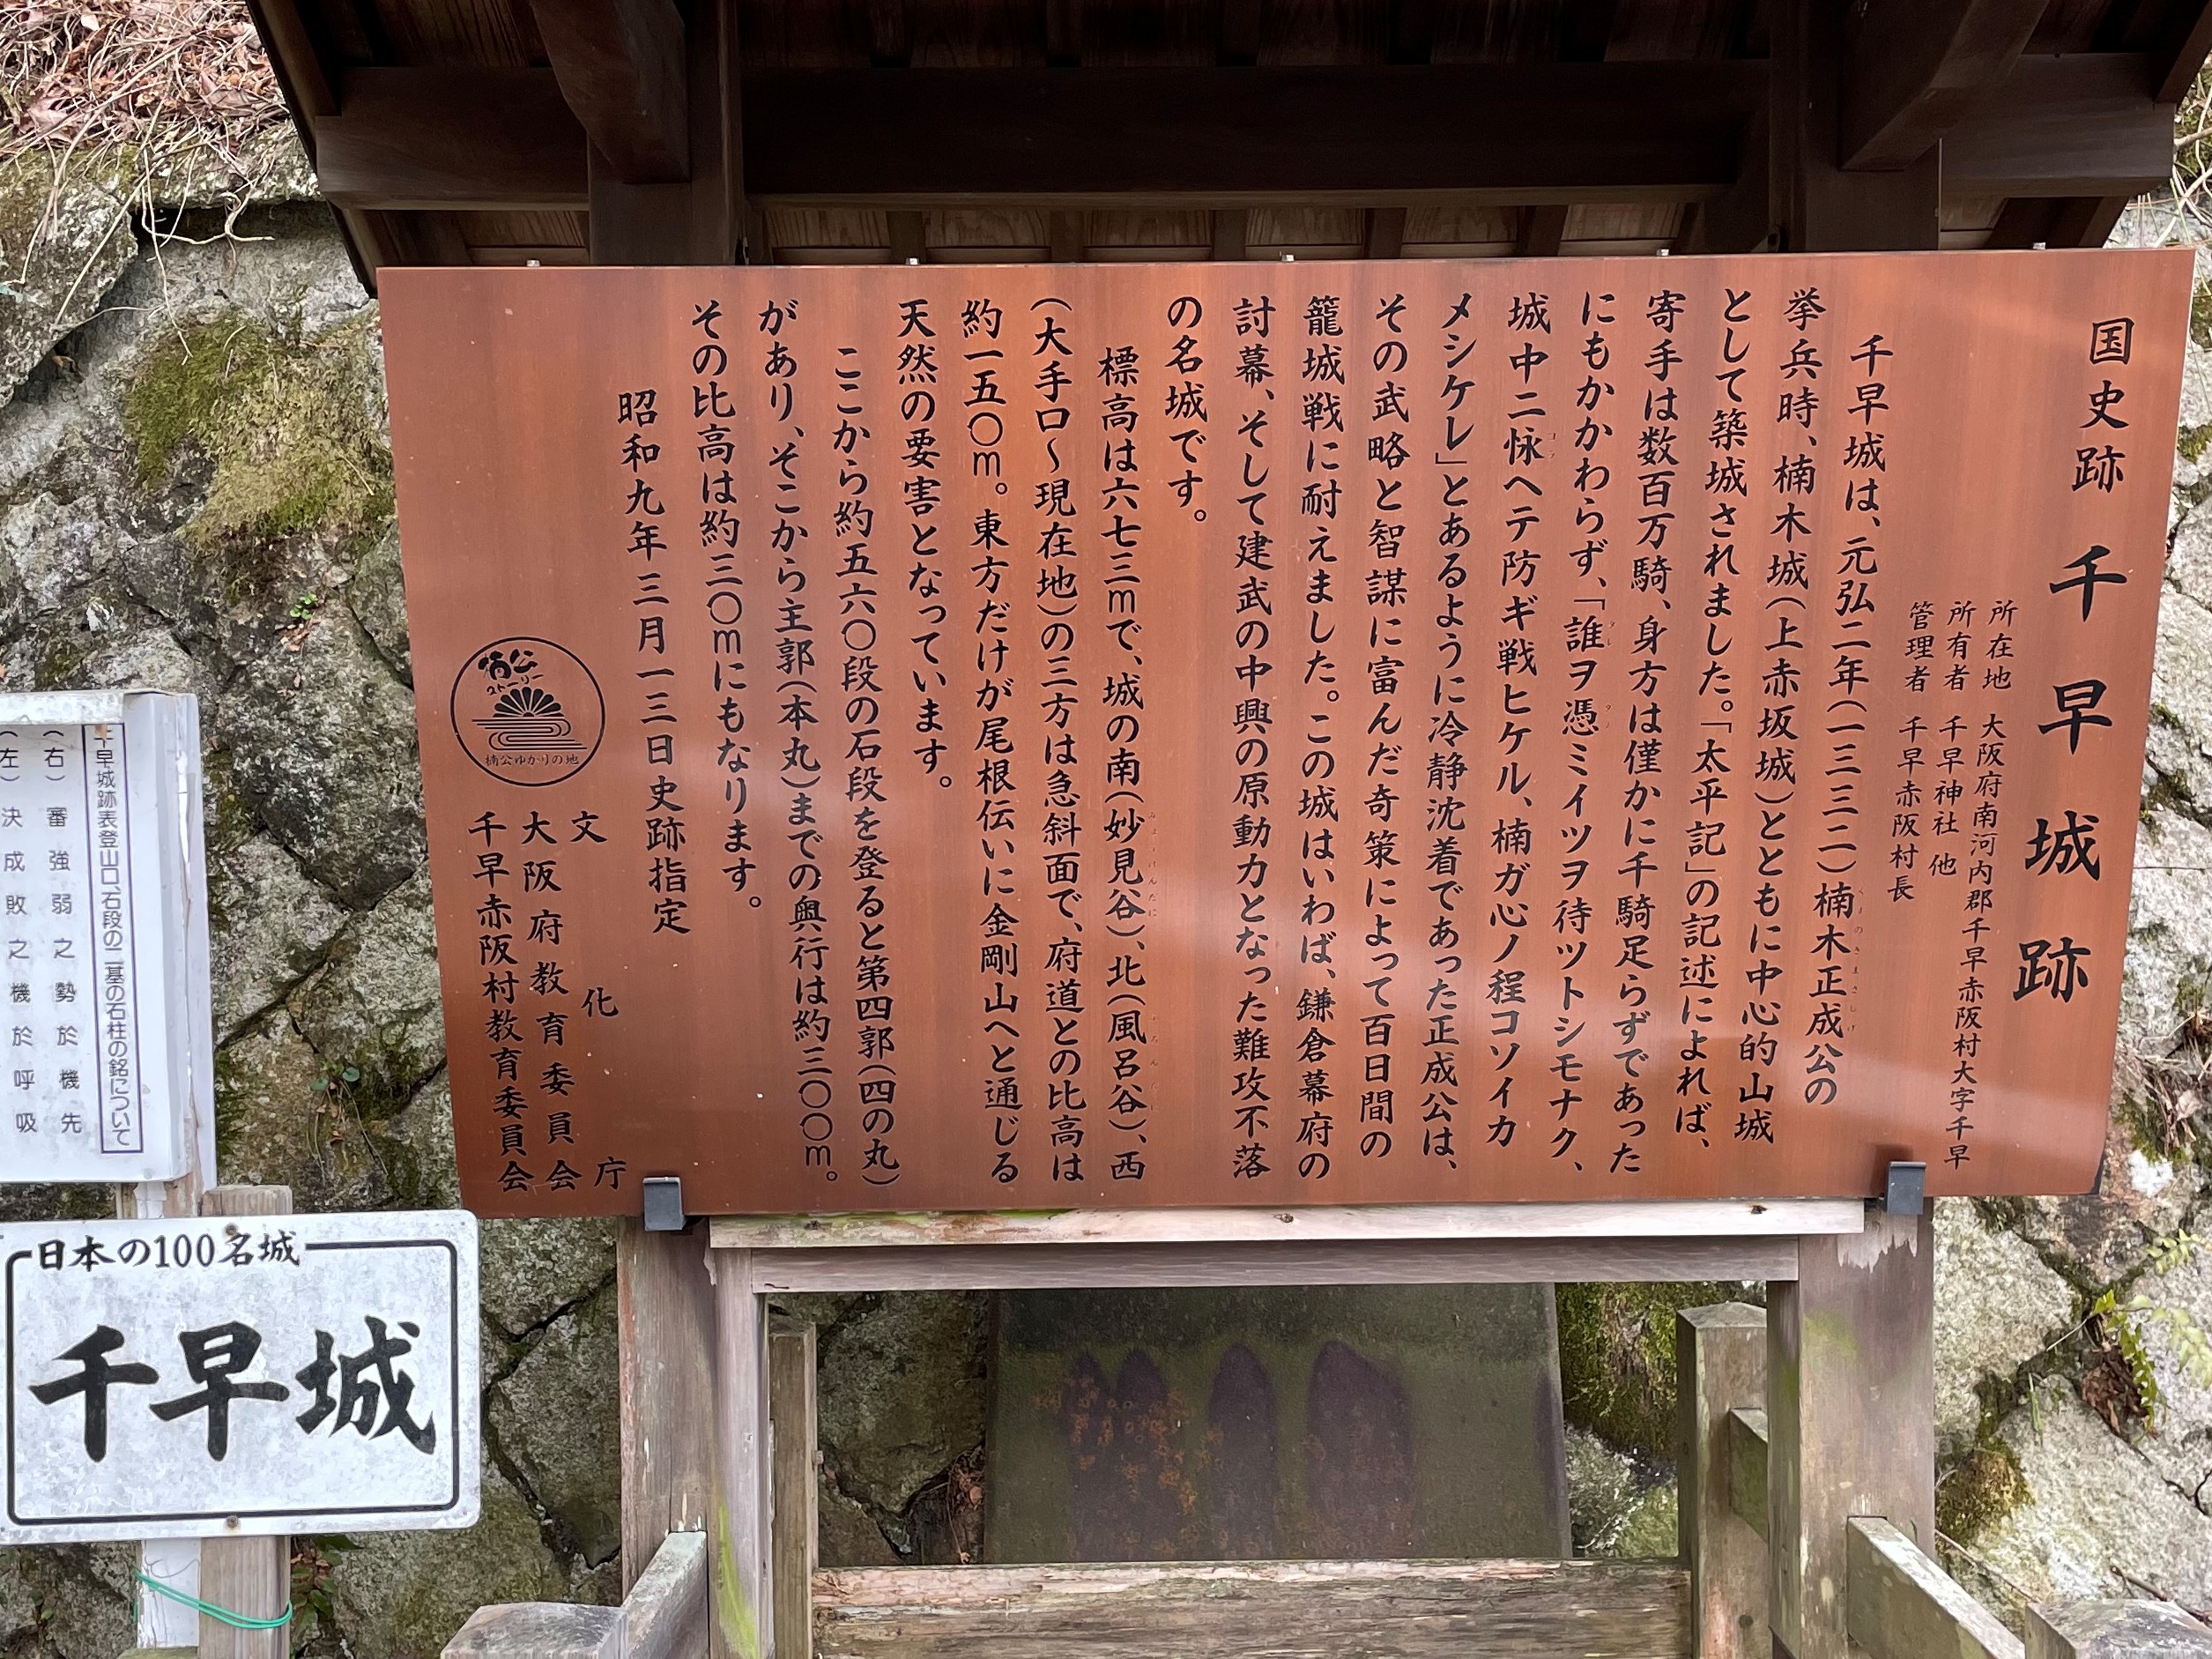 国史跡 千早城跡
所在地 大阪府南河内郡千早赤阪村大字千早
所有者 千早神社 他
管理者 千早赤阪村長
千早城は、元弘二年(一三三二)楠木正成公の
挙兵時、楠木城(上赤坂城)とともに中心的山城
として築城されました。「太平記」の記述によれば、
寄手は数百万騎、身方は僅かに千騎足らずであった
にもかかわらず、「誰ヲ憑ミイツヲ待ツトシモナク、
城中ニ怺ヘテ防ギ戦ヒケル、楠ガ心ノ程コソイカ
メシケレ」とあるように冷静沈着であった正成公は、
その武略と智謀に富んだ奇策によって百日間の
籠城戦に耐えました。この城はいわば、鎌倉幕府の
討幕、そして建武の中興の原動力となった難攻不落
の名城です。
標高は六七三mで、城の南(妙見谷)、北(風呂谷)、西
(大手口〜現在地)の三方は急斜面で、府道との比高は
約一五〇m。東方だけが尾根伝いに金剛山へと通じる
天然の要害となっています。
ここから約五六〇段の石段を登ると第四郭(四の丸)
があり、そこから主郭(本丸)までの奥行は約三〇〇m。
その比高は約三〇mにもなります。
昭和九年三月一三日史跡指定
文化庁
大阪府教育委員会
千早赤阪村教育委員会
楠公
ストーリー
楠公ゆかりの地
千早城跡表登山口、石段の二基の石柱の銘について
(右)審強弱之勢於機先
(左)決成敗之機於呼吸
日本の100名城
千早城